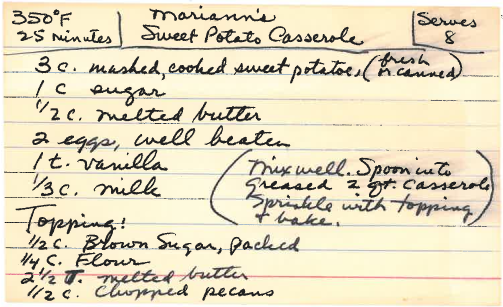 350°F
25 minutes
Mariann's
Sweet Potato Casserole
Serves
8
3 c. mashed, cooked sweet potatoes, (fresh or canned)
1 c sugar
1/2 c. melted butter
2 eggs, well beaten
1 t. vanilla
1/3 c. milk
(Mix well. Spoon into
greased 2 qt. casserole
Sprinkle with topping
+ bake.)
Topping!
1/2 c. Brown Sugar, packed
1/4 c. Flour
2 1/2 T. melted butter
1/2 c. Chopped pecans